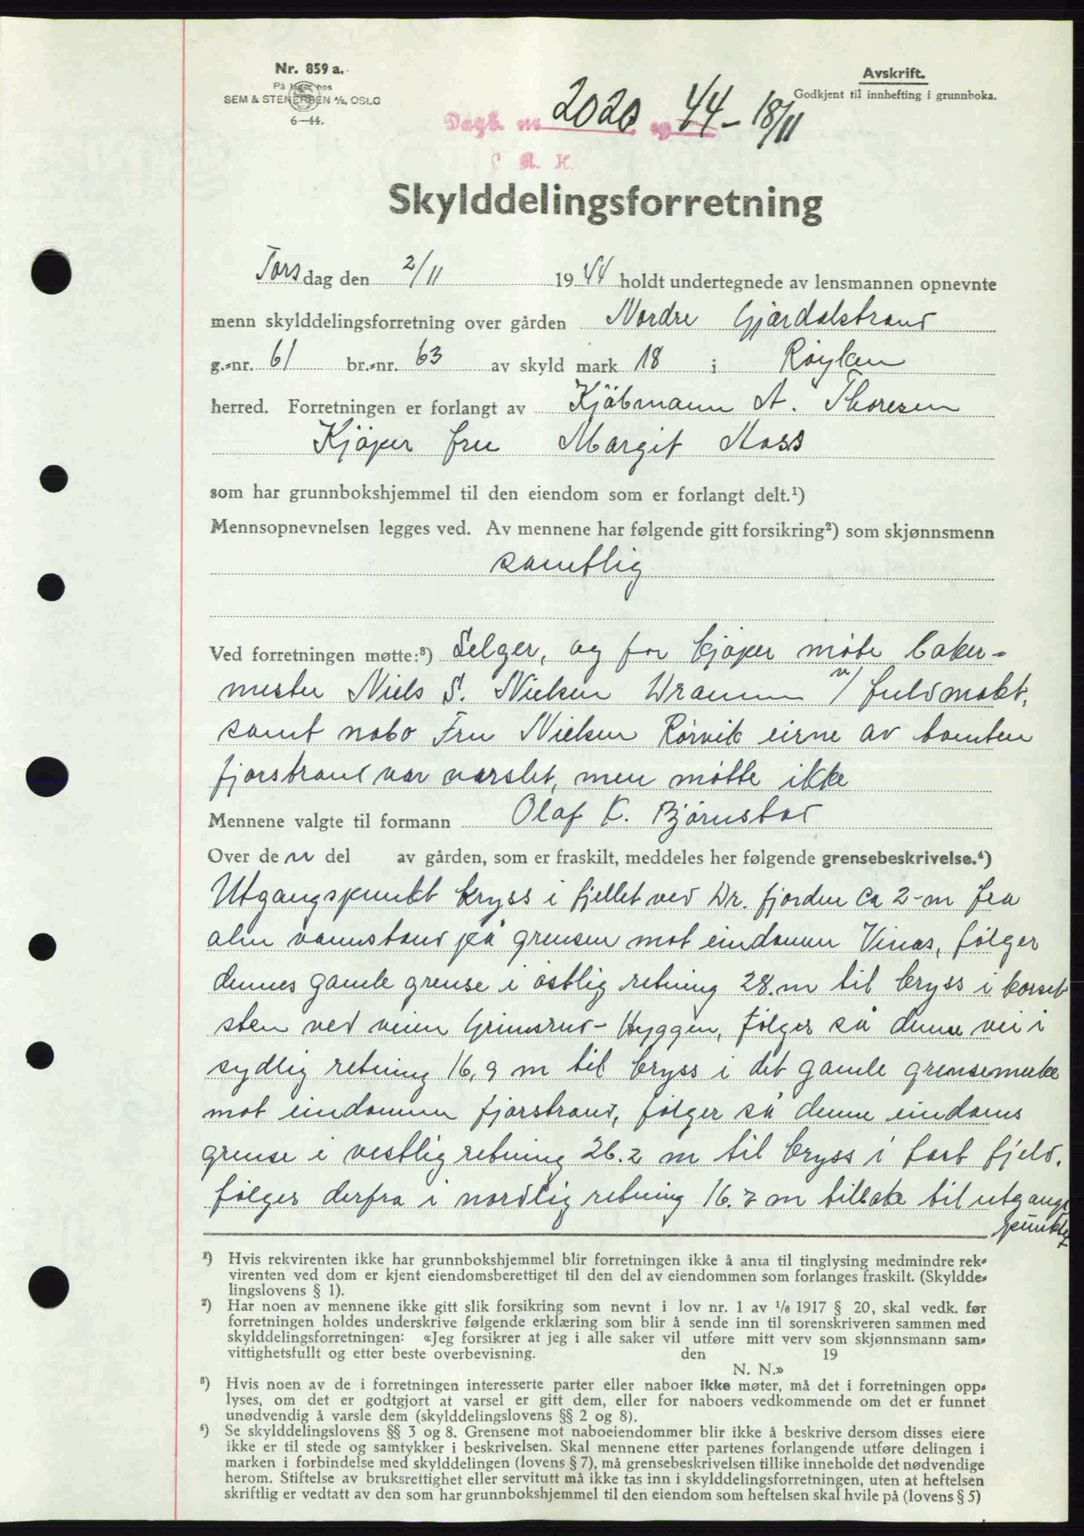 Nr. 859 a.
På lager hos
SEM & STENERSEN A/S, OSLO
6—44.
Avskrift.
Godkjent til innhefting i grunnboka.
Dagb. nr. 2020 19 44 - 18/11
S. R. H.
Skylddelingsforretning
Torsdag den 2/11 1944 holdt undertegnede av lensmannen opnevnte
menn skylddelingsforretning over gården Nordre Gjerdalstrand
g.-nr. 61 br.-nr. 63 av skyld mark 18 i Røyken
herred. Forretningen er forlangt av Kjøbmann A. Thoresen
Kjøper fru Margit Moss
som har grunnbokshjemmel til den eiendom som er forlangt delt.¹)
Mennsopnevnelsen legges ved. Av mennene har følgende gitt forsikring²) som skjønnsmenn
samtlig
Ved forretningen møtte:³) Selger, og for kjøper møte baker-
mester Niels S. Nielsen Drammen m/ fuldmakt,
samt nabo Fru Nielsen Rørvik eirne av tomten
fjorstrand var varslet, men møtte ikke
Mennene valgte til formann Olaf K. Bjørnstad
Over den del av gården, som er fraskilt, meddeles her følgende grensebeskrivelse.⁴)
Utgangspunkt kryss i fjellet ved Dr. fjorden ca 2-m fra
alm vannstand på grensen mot eindomen Vinas, følger
dennes gamle grense i østlig retning 28.m til kryss i
sten ved veien Grimsrud - Hyggen, følger så denne vei i
sydlig retning 16,9 m til kryss i det gamle grensemerke
mot eindommen fjorstrand, følger så denne eindoms
grense i vestlig retning 26.2 m til kryss i fast fjeld.
følger derfra i nordlig retning 16.7 m tilbake til utgangs
punktet
¹) Hvis rekvirenten ikke har grunnbokshjemmel blir forretningen ikke å anta til tinglysing medmindre rek-
virenten ved dom er kjent eiendomsberettiget til den del av eiendommen som forlanges fraskilt. (Skyldde-
lingslovens § 1).
²) Har noen av mennene ikke gitt slik forsikring som nevnt i lov nr. 1 av 1/6 1917 § 20, skal vedk. før
forretningen holdes underskrive følgende erklæring som blir å sende inn til sorenskriveren sammen med
skylddelingsforretningen: «Jeg forsikrer at jeg i alle saker vil utføre mitt verv som skjønnsmann sam-
vittighetsfullt og etter beste overbevisning. den 19
N. N.»
³) Hvis noen av de i forretningen interesserte parter eller naboer ikke møter, må det i forretningen opp-
lyses, om det er godtgjort at varsel er gitt dem, eller for naboers vedkommende om det er funnet
unødvendig å varsle dem (skylddelingslovens §§ 2 og 8).
⁴) Se skylddelingslovens §§ 3 og 8. Grensene mot naboeiendommer blir ikke å beskrive dersom disses eiere
ikke er til stede og samtykker i beskrivelsen. Skal mennene etter partenes forlangende utføre delingen i
marken i forbindelse med skylddelingen (lovens § 7), må grensebeskrivelsen tillike inneholde det nødvendige
herom. Stiftelse av bruksrettighet eller servitutt må ikke tas inn i skylddelingsforretningen, uten at heftelsen
skriftlig er vedtatt av den som har grunnbokshjemmel til den eiendom som heftelsen skal hvile på (lovens § 5)